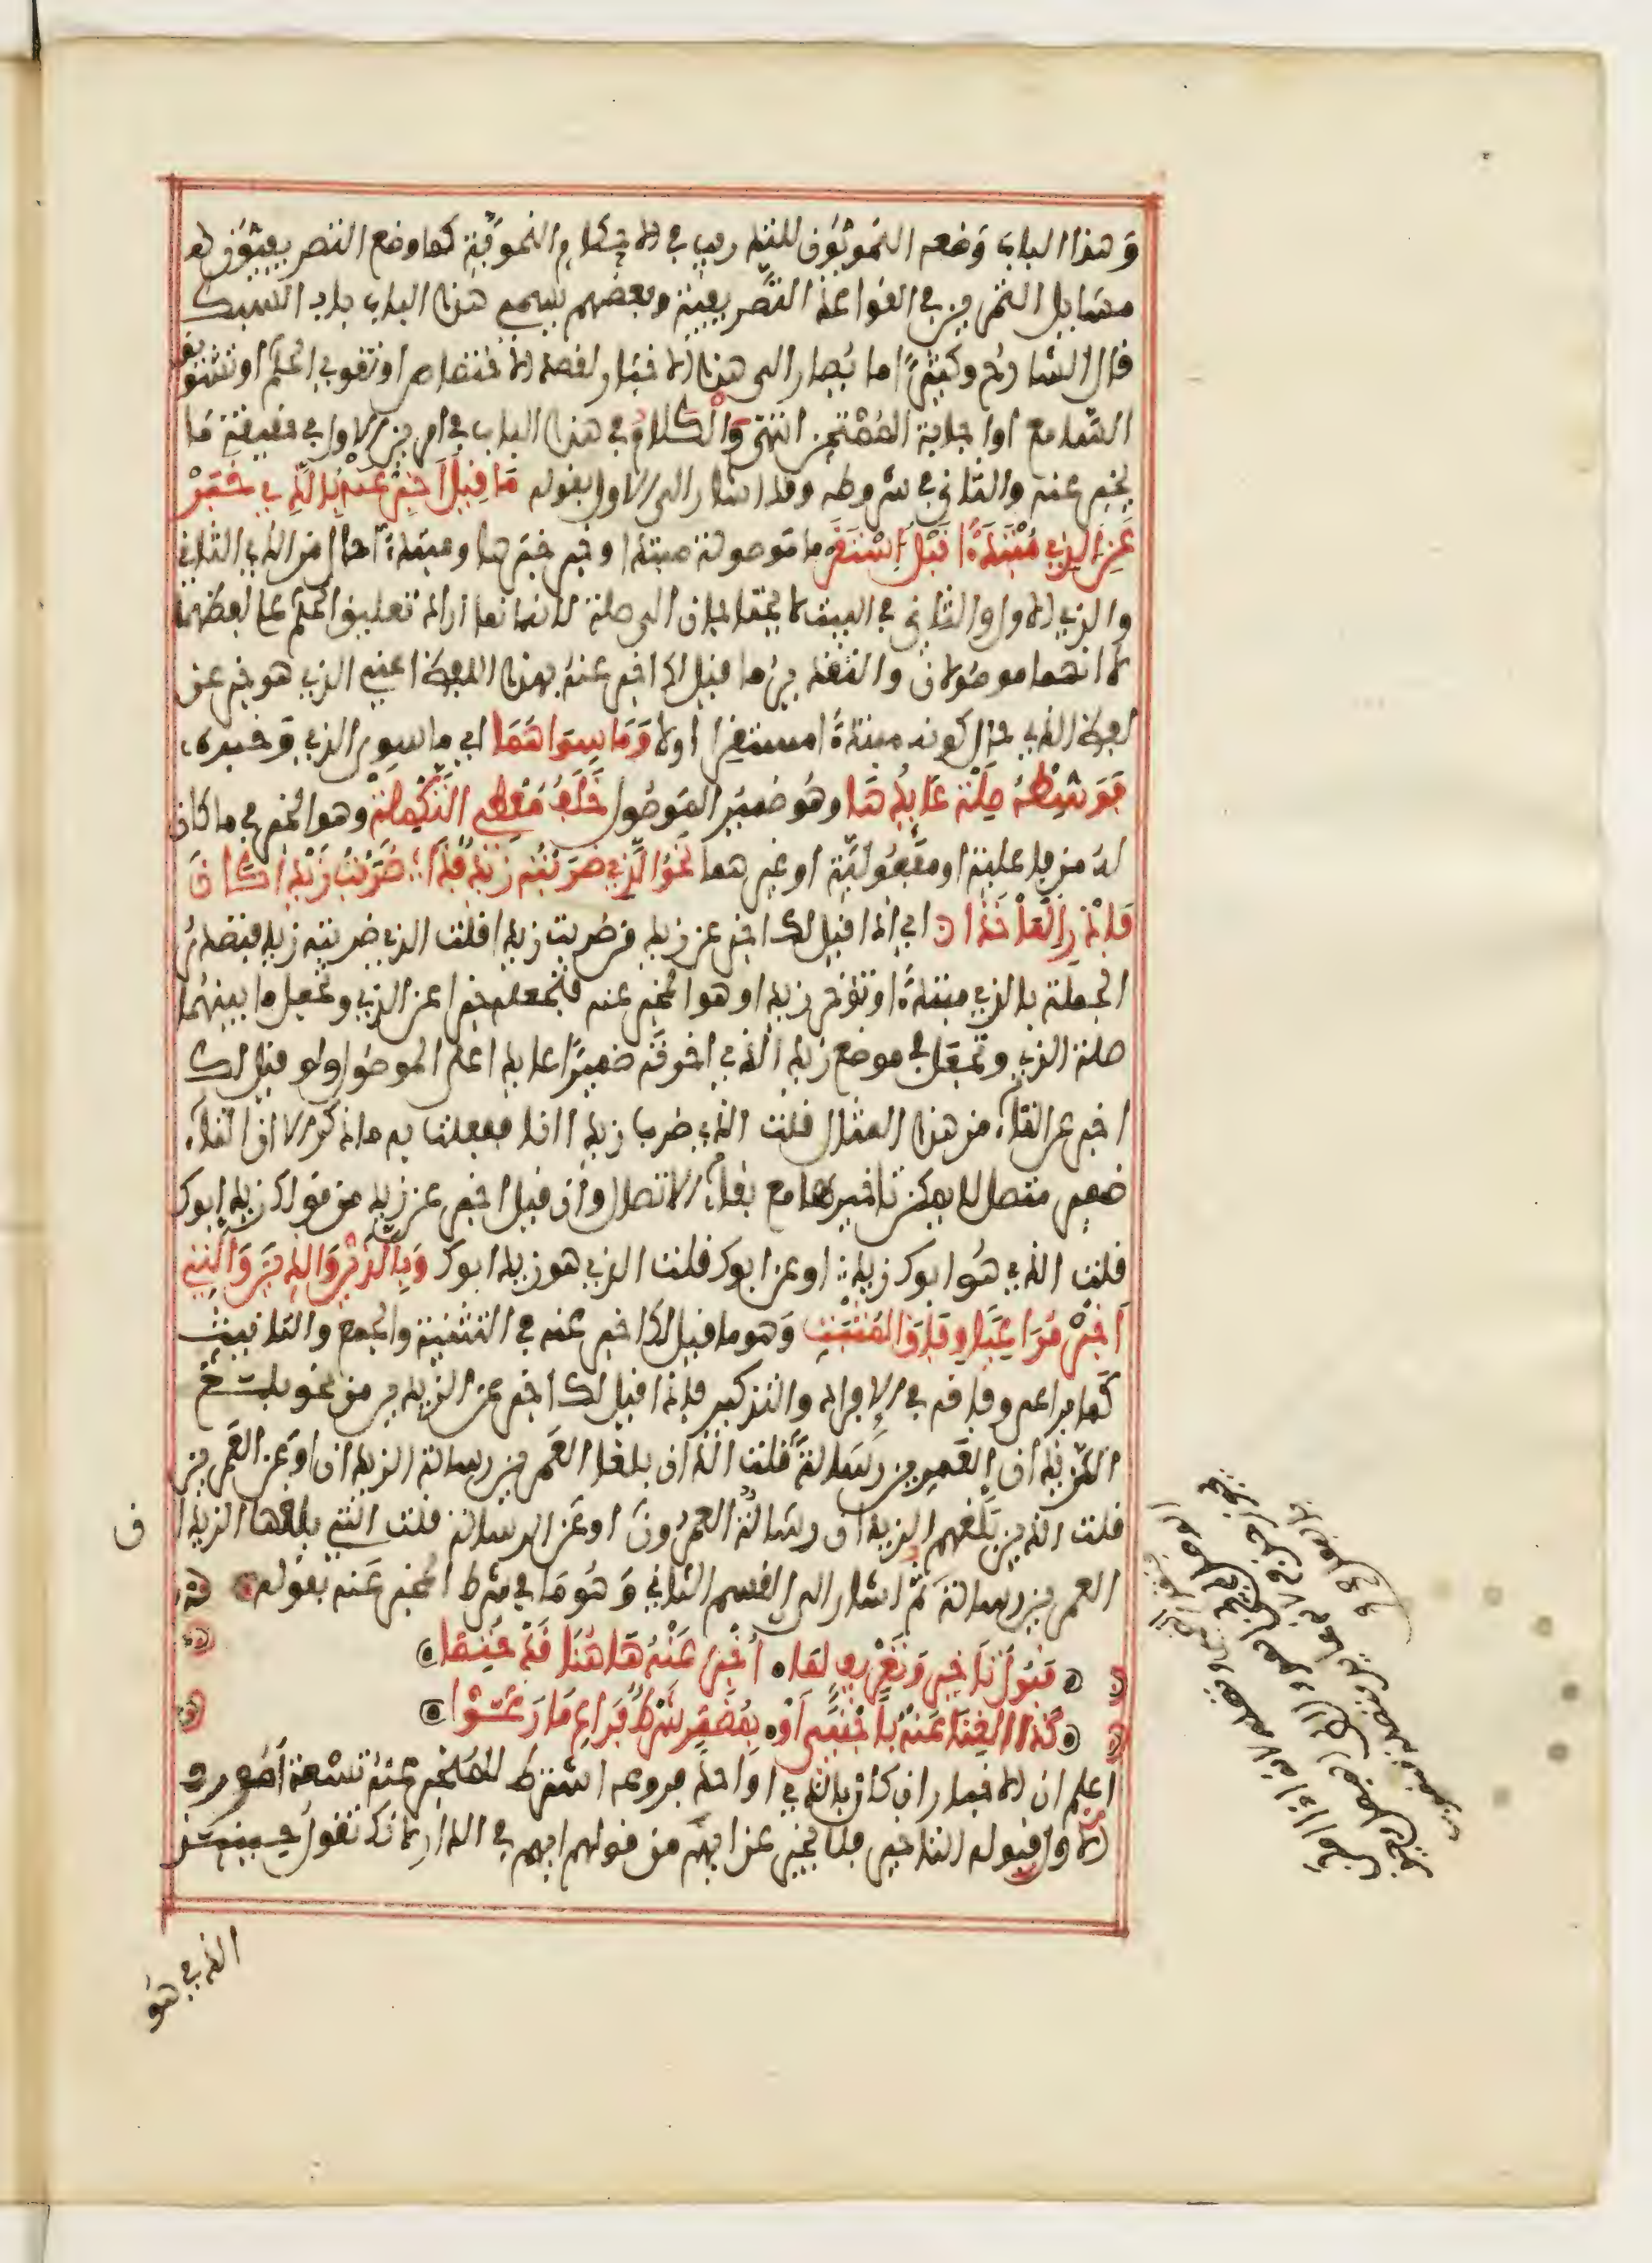 وَهذا الباب وَضعه النحويّون للتدريب في الاحكام النحويّة كما وضع التصريفيّون
مسايل التمرين في القواعد التصريفيّة وبعضهم يسمي هذا الباب باب السبك
قال الشارح وكثيرًا ما يُصار الى هذا الاخبار لقصد الاختصاص او تقوي الحكم او تشويق
السامع او اجابة الممتحن انتهى وَالْكَلامُ في هذا الباب في امرين الاول في حقيقة ما
يخبر عنه والثاني في شروطه وقد اشار الى الاول بقوله مَا قِيلَ أَخْبِرْ عَنْهُ بِالَّذِي خَبَرْ
عَنِ الَّذِي مُبْتَدَءًا قَبْلُ اسْتَقَرْ ما موصولة مبتدا وخبر خبرها ومبتدءًا حال من الذي الثاني
والذي الاول والثاني في البيت لا يحتاجان الى صلة لانه انما اراد تعليق الحكم على لفظهما
لا انهما موصُولان والتقدير ما قيل لك اخبر عنهُ بهذا اللفظ اعني الذي هو خبر عن
لفظ الذي حال كونه مبتدءًا مستقرا اولا وَمَا سِوَاهُمَا اي ما سوى الذي وَخبره
فَوَسِّطْهُ صِلَهْ عَايِدُهَا وهُو ضمير الموصُول خَلَفُ مُعْطِي التَّكْمِلَهْ وهو الخبر في ما كان
لهُ من فاعلية او مفعُوليّة او غيرهما نَحْوُ الَّذِي ضَرَبْتُهُ زَيْدٌ فَذَا ضَرَبْتُ زَيْدًا كَانَ
فَادْرِ الْمَأْخَذَا اي اذا قيل لك اخبر عن زيد من ضربت زيدا قلت الذي ضربته زيد فتصدرُ
الجملة بالذي مبتدءًا وتؤخر زيدا وهو المخبر عنه فتجعله خبرا عن الذي وتجعل ما بينهُما
صلة الذي وتجعل في موضع زيد الذي اخرته ضميرًا عايدا على الموصُول ولو قيل لك
اخبر عن التاء من هذا المثال قلت الذي ضرب زيدا انا ففعلت به ما ذكر الا ان التاء
ضمير متصل لا يمكن تاخيرها مع بقاء الاتصال وان قيل اخبر عن زيد من قولك زيد ابوك
قلت الذي هُوَ ابوك زيد او عن ابوك قلت الذي هو زيد ابوك وَبِاللَّذَيْنِ وَالَّذِينَ وَالَّتِي
أَخْبِرْ مُرَاعِيًا وِفَاقَ الْمُثْبَتِ وَهو ما قيل لك اخبر عنه في التثنية والجمع والتانيث
كما تراعي وفاقه في الافراد والتذكير فاذا قيل لك اخبر عن الزيدين من نحو بلغ
الزيدان العمرين رسالةً قلت اللذان بلغا العمرين رسالة الزيدان او عن العمرين
قلت الذين بلغهم الزيدان رسالة العمرُونَ او عن الرسالة قلت التي بلغها الزيدان
العمرين رسالة ثم اشار الى القسم الثاني وَهُوَ مَا في شرط المخبر عَنه بقوله
قَبُولُ تَأْخِيرٍ وَتَعْرِيفٍ لِمَا أُخْبِرَ عَنْهُ هَاهُنَا قَدْ حُتِمَا
كَذَا الْغِنَى عَنْهُ بِأَجْنَبِيٍّ أَوْ بِمُضْمَرٍ شَرْطٌ فَرَاعِ مَا رَعَوْا
اعلم ان الاخبار ان كان بالذي او احد فروعه اشترط للمخبر عنهُ تسعة امُور
الاول قبوله التاخير فلا يخبر عن ايهم من قولهم ايهم في الدار لانك تقول حينئذ
الذي هُو